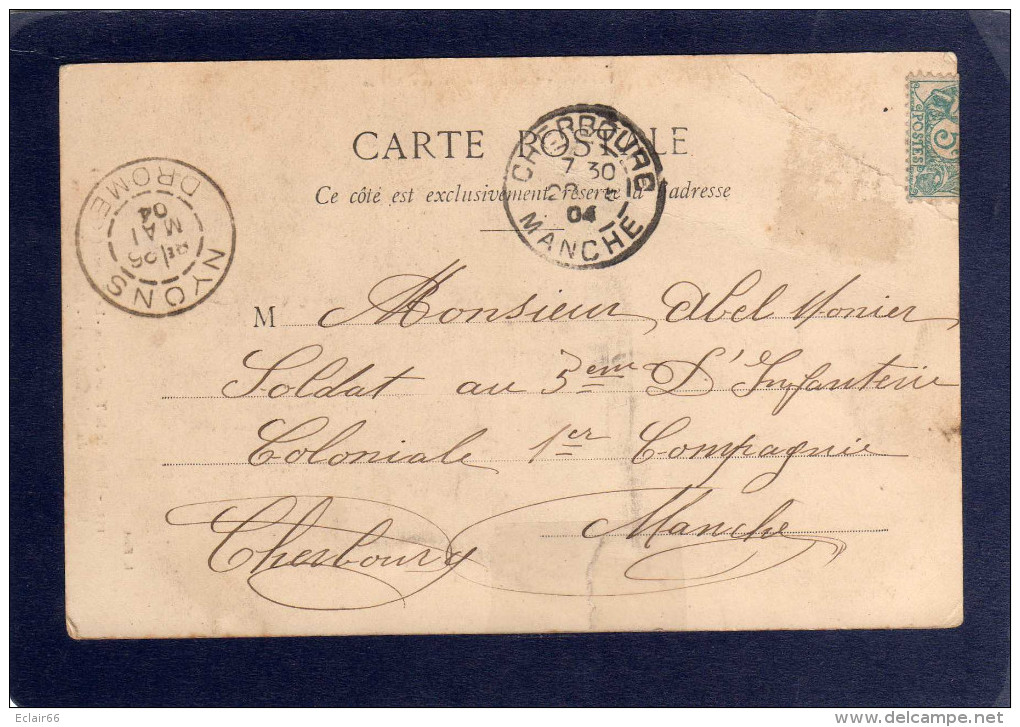 CARTE POSTALE
Ce côté est exclusivement réservé à l'adresse
CHERBOURG
7 30
04
MANCHE
NYONS
26
MAI
04
DROME
5
POSTES
M Monsieur Abel Monier
Soldat au 5eme D'Infanterie
Coloniale 1er Compagnie
Cherbourg Manche
Eclair66
www.delcampe.net